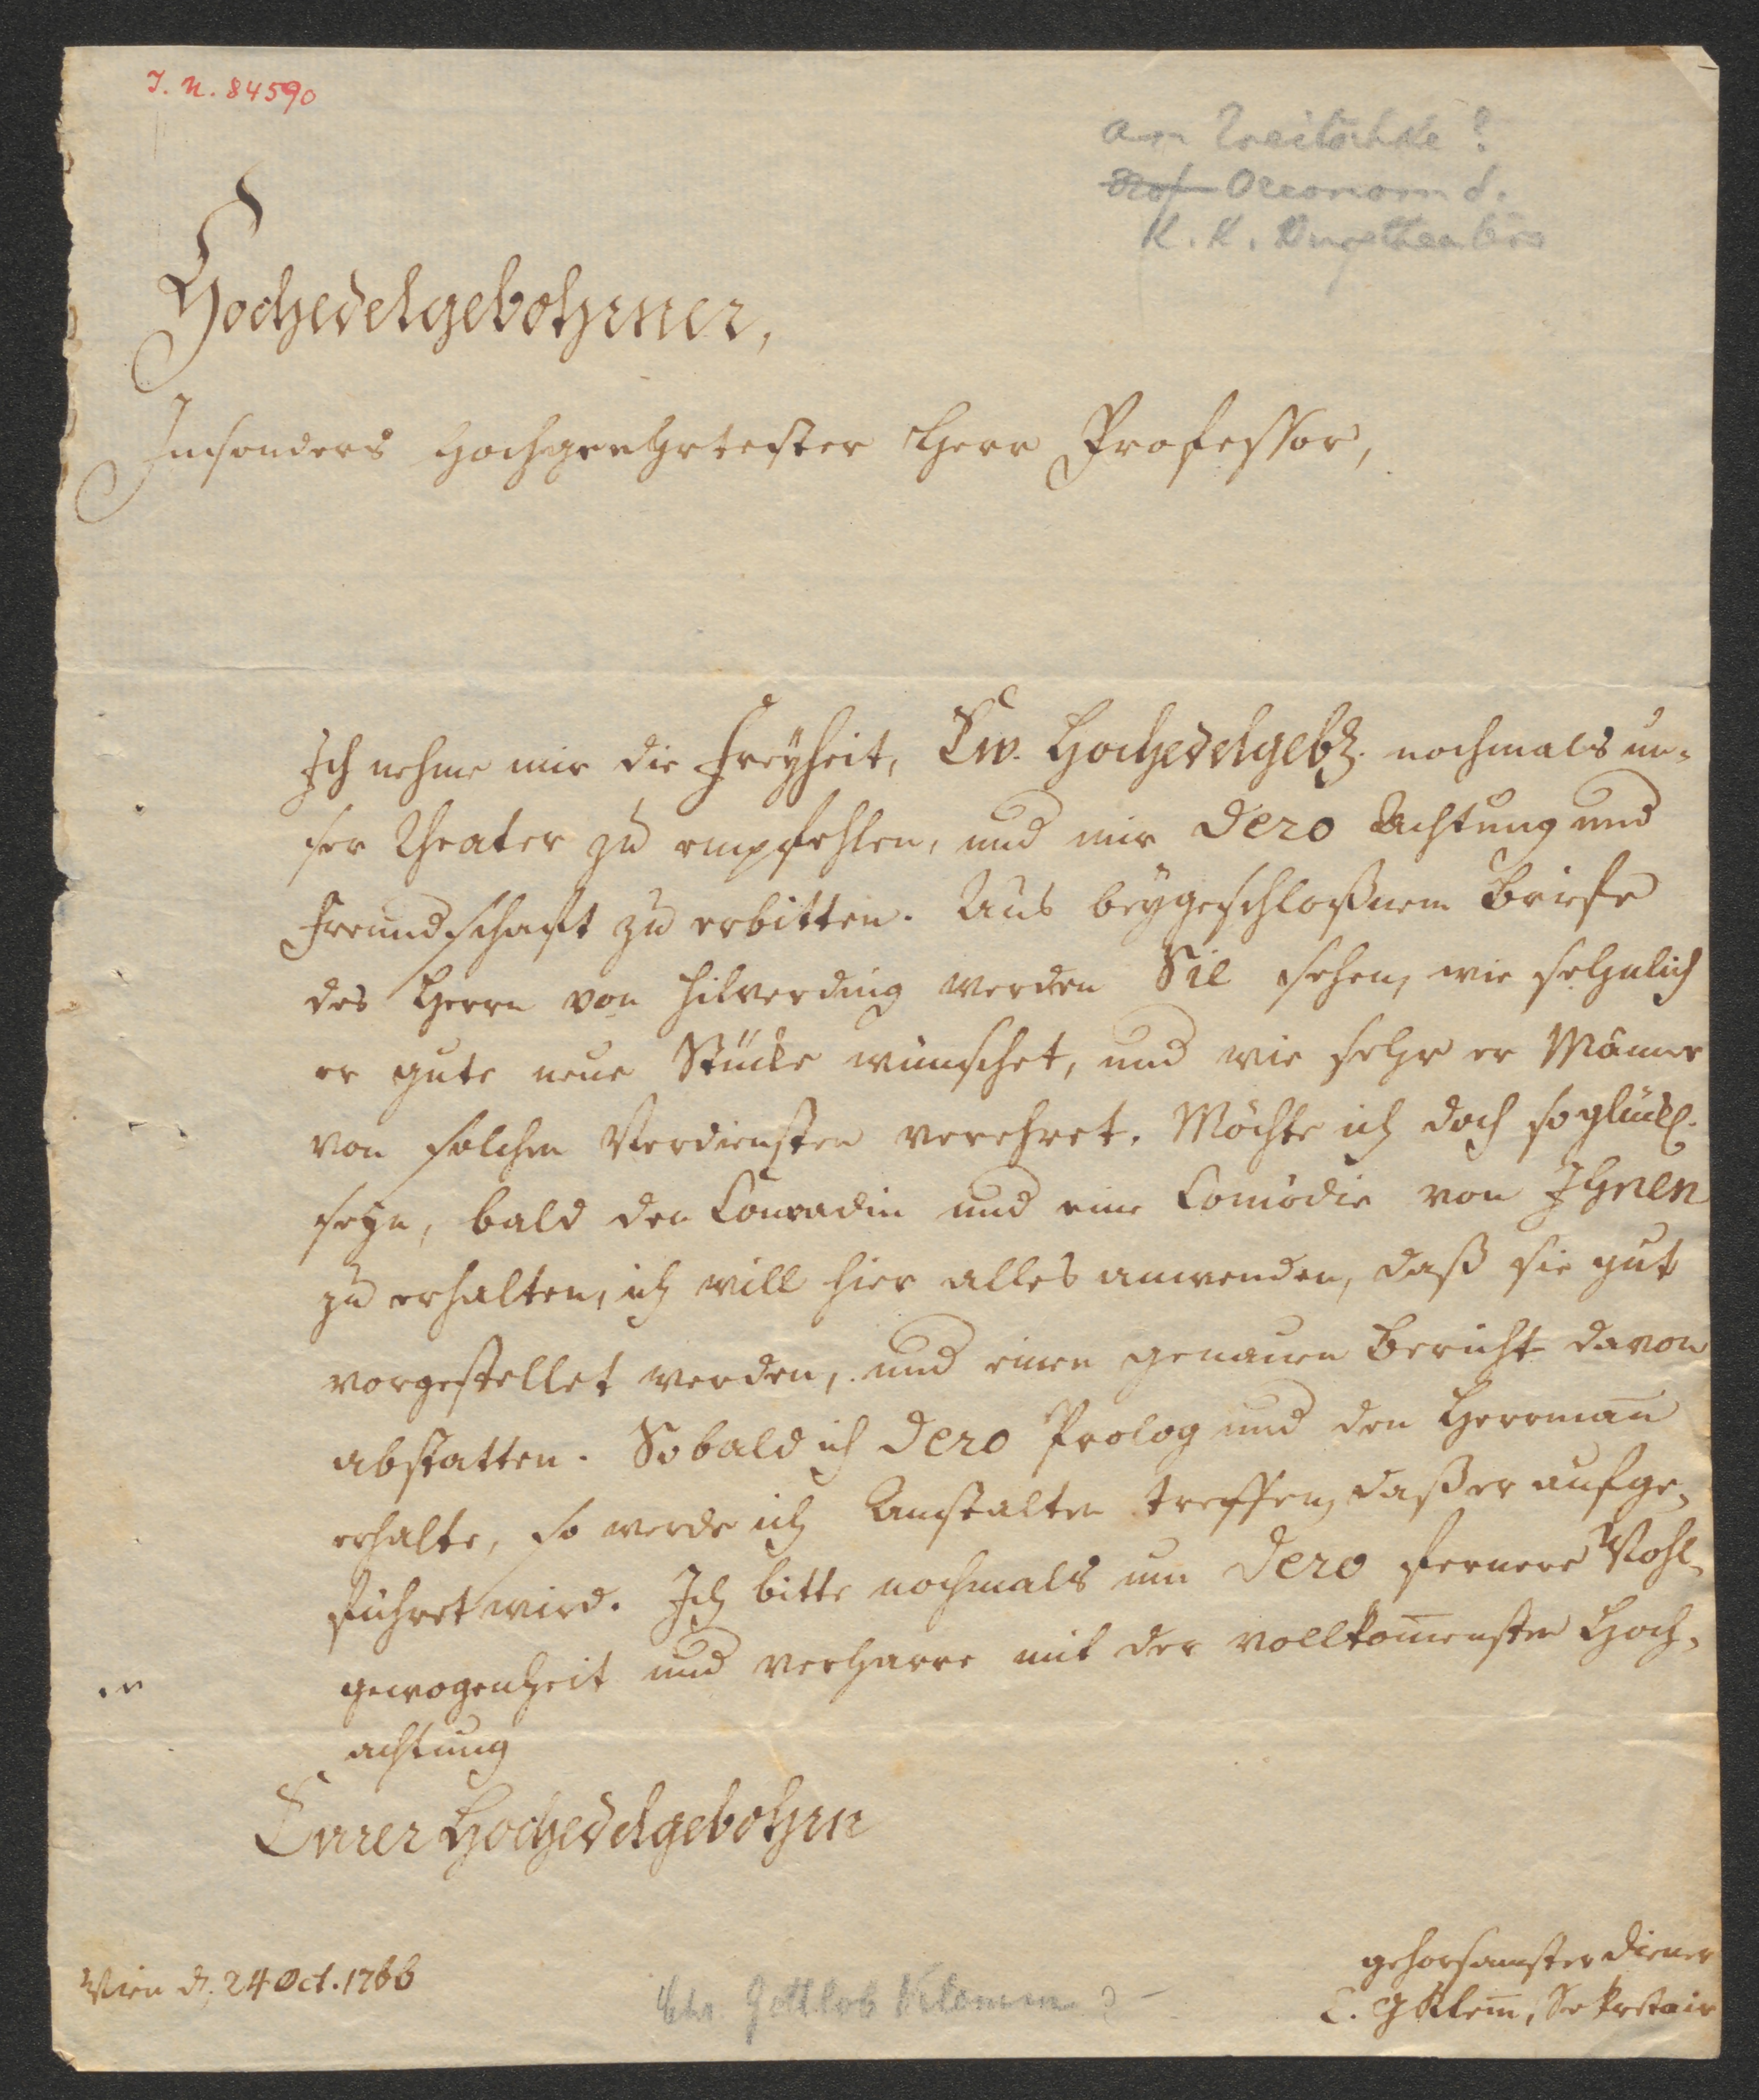 I. N. 84590
an Treitschke?
Oeconom d.
K. K. Burgtheaters
Hochedelgebohrner,
Insonders Hochgeehrtester Herr Professor,
Ich nehme mir die Freyheit, Ew. Hochedelgeb. nochmals un-
ser Theater zu empfehlen, und mir Dero Achtung und
Freundschaft zu erbitten. Aus beygeschloßnem Briefe
des Herrn von Hilverding werden Sie sehen, wie sehnlich
er gute neue Stücke wünschet, und wie sehr er Männer
von solchen Verdiensten verehret. Möchte ich doch so glückl.
seyn, bald den Conradin und eine Comödie von Ihnen
zu erhalten, ich will hier alles anwenden, daß sie gut
vorgestellet werden, und einen genauen Bericht davon
abstatten. Sobald ich Dero Prolog und den Herrman̄
erhalte, so werde ich Anstalten treffen, daß er aufge-
führet wird. Ich bitte nochmals um Dero fernere Wohl-
gewogenheit und verharre mit der vollkom̄ensten Hoch-
achtung
Eurer Hochedelgebohrn
Wien d. 24 Oct. 1766
gehorsamster Diener
C. G Klem̄, Sekretair
Chr. Gottlob Klemm?